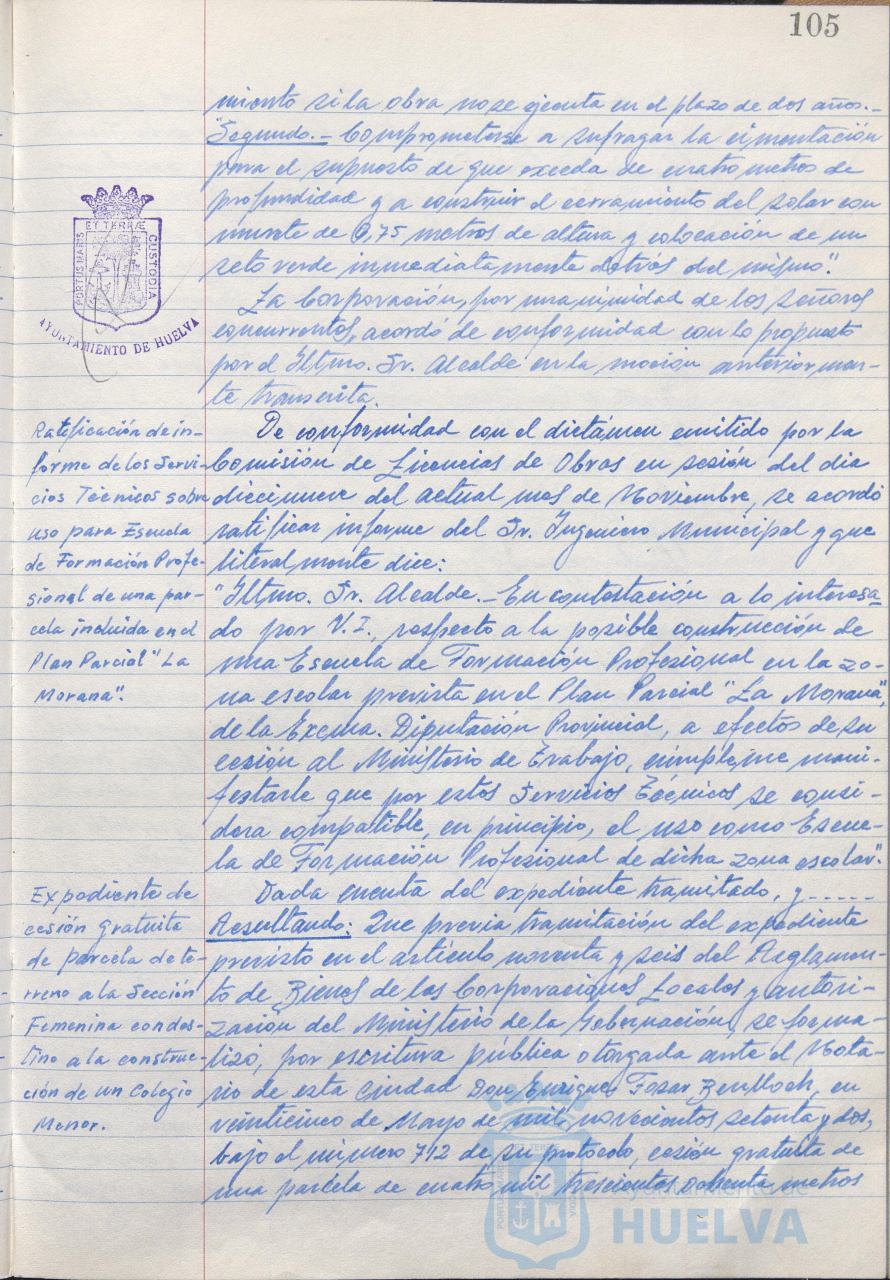 105
miento si la obra no se ejecuta en el plazo de dos años.-
"Segundo.- Comprometerse a sufragar la cimentación
para el supuesto de que exceda de cuatro metros de
profundidad y a construir el cerramiento del solar con
murete de 0,75 metros de altura y colocación de un
seto verde inmediatamente detrás del mismo".
La Corporación, por unanimidad de los señores
concurrentes, acordó de conformidad con lo propuesto
por el Iltmo. Sr. Alcalde en la moción anteriormen-
te transcrita.
PORTUS MARIS ET TERRÆ CUSTODIA
AYUNTAMIENTO DE HUELVA
Ratificación de in-
forme de los Servi-
cios Técnicos sobre
uso para Escuela
de Formación Profe-
sional de una par-
cela incluida en el
Plan Parcial "La
Morana".
De conformidad con el dictámen emitido por la
Comisión de Licencias de Obras en sesión del dia
diecinueve del actual mes de Noviembre, se acordó
ratificar informe del Sr. Ingeniero Municipal y que
literalmente dice:
"Iltmo. Sr. Alcalde.- En contestación a lo interesa-
do por V.I., respecto a la posible construcción de
una Escuela de Formación Profesional en la zo-
na escolar prevista en el Plan Parcial "La Morana",
de la Excma. Diputación Provincial, a efectos de su
cesión al Ministerio de Trabajo, cúmpleme mani-
festarle que por estos Servicios Técnicos se consi-
dera compatible, en principio, el uso como Escue-
la de Formación Profesional de dicha zona escolar".
Expediente de
cesión gratuita
de parcela de te-
rreno a la Sección
Femenina con des-
tino a la construc-
ción de un Colegio
Menor.
Dada cuenta del expediente tramitado, y-----
Resultando: Que previa tramitación del expediente
previsto en el artículo noventa y seis del Reglamen-
to de Bienes de las Corporaciones Locales y autori-
zación del Ministerio de la Gobernación, se forma-
lizó, por escritura pública otorgada ante el Nota-
rio de esta Ciudad Don Enrique Tozar Benlloch, en
veinticinco de Mayo de mil novecientos setenta y dos,
bajo el número 712 de su protocolo, cesión gratuita de
una parcela de cuatro mil trescientos ochenta metros
Ayuntamiento de
HUELVA